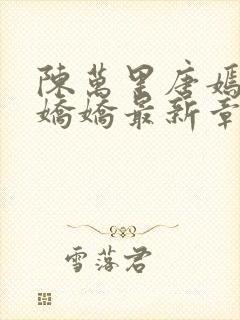 陳萬里唐嫣
嬌嬌最新章
雪落君